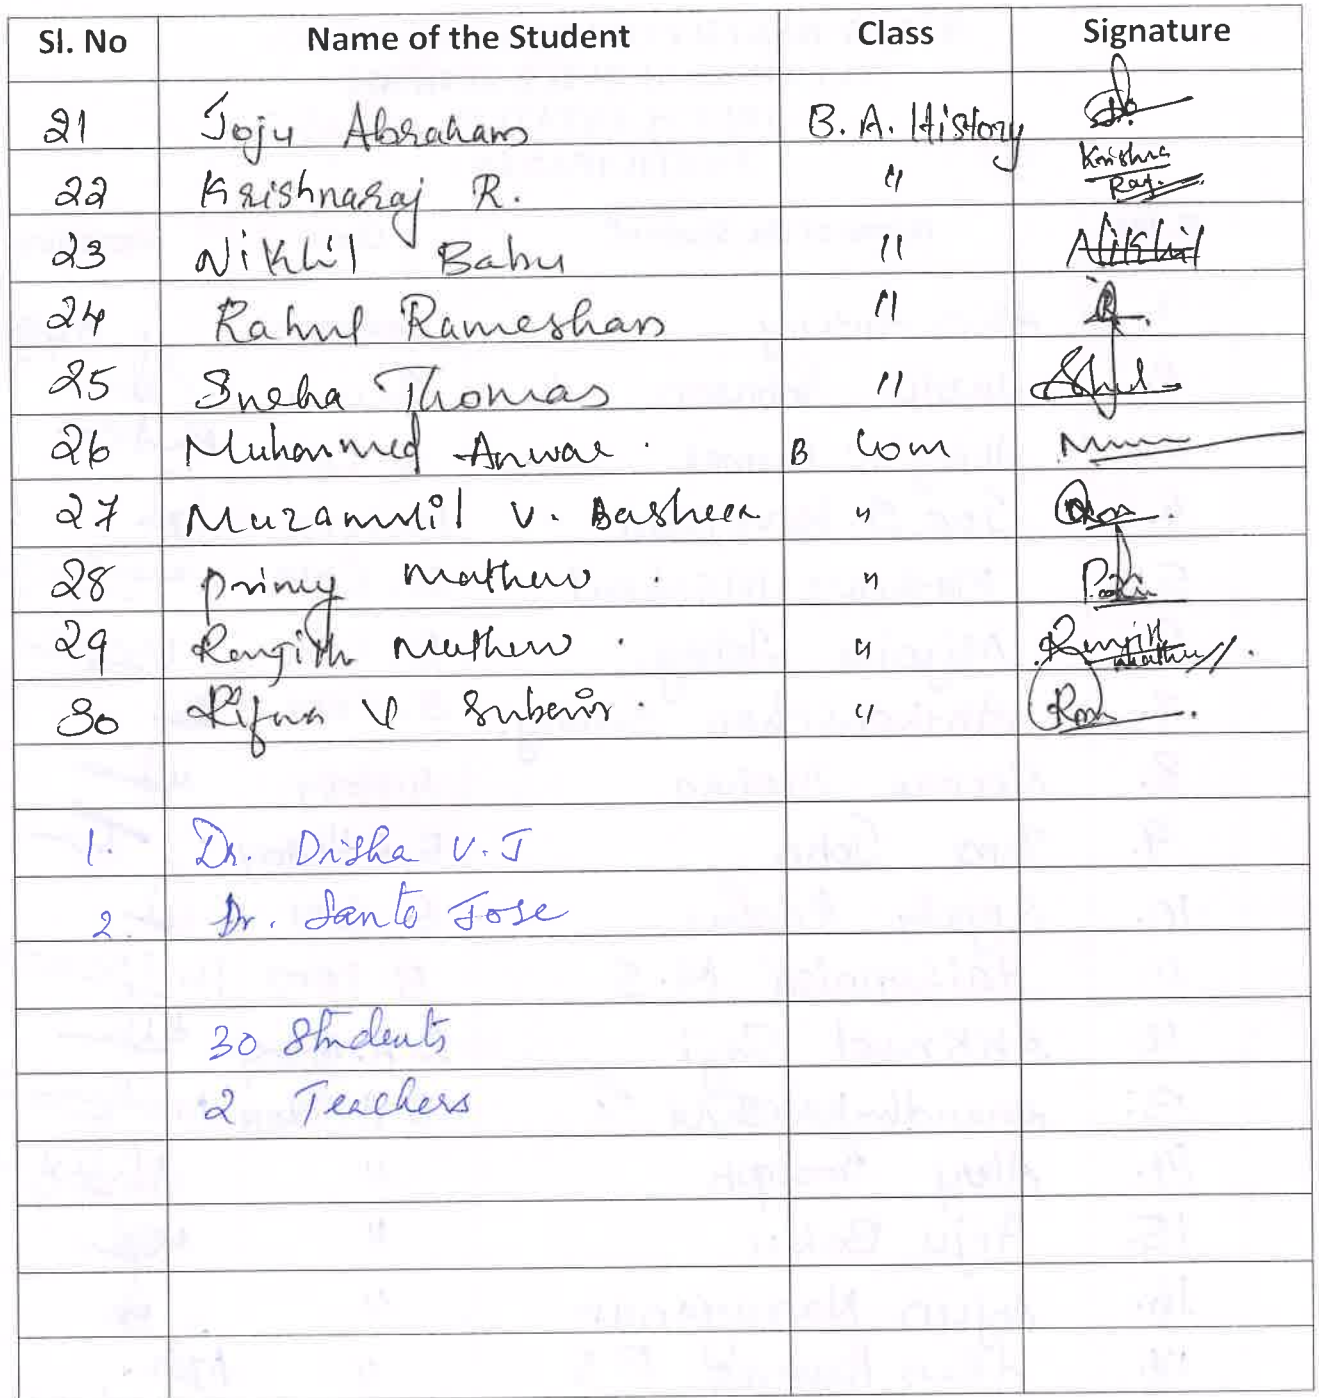 Sl. No Name of the Student Class Signature
21 Joju Abraham B. A. History
22 Krishnaraj R. " Krishna Raj
23 Nikhil Babu " Nikhil
24 Rahul Rameshan "
25 Sneha Thomas "
26 Muhammed Anwar . B Com
27 Muzammil V. Basheer "
28 Princy Mathew . "
29 Rengith Mathew . " Rengith Mathew
30 Rifna V Subair . "
1. Dr. Disha V. J
2. Dr. Santo Jose
30 Students
2 Teachers